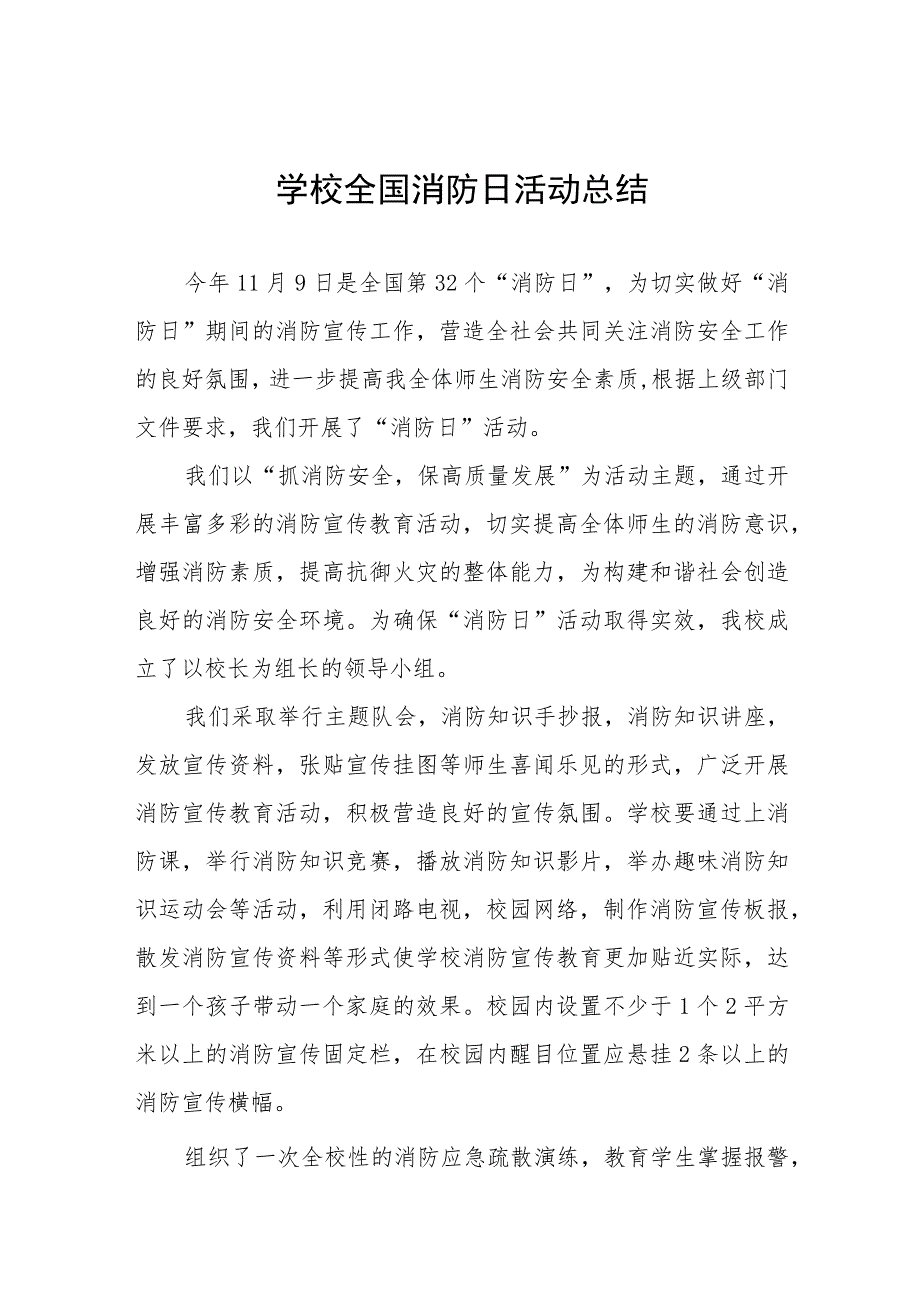 学校全国消防日活动总结
今年11月9日是全国第32个“消防日”，为切实做好“消
防日”期间的消防宣传工作，营造全社会共同关注消防安全工作
的良好氛围，进一步提高我全体师生消防安全素质,根据上级部门
文件要求，我们开展了“消防日”活动。
我们以“抓消防安全，保高质量发展”为活动主题，通过开
展丰富多彩的消防宣传教育活动，切实提高全体师生的消防意识，
增强消防素质，提高抗御火灾的整体能力，为构建和谐社会创造
良好的消防安全环境。为确保“消防日”活动取得实效，我校成
立了以校长为组长的领导小组。
我们采取举行主题队会，消防知识手抄报，消防知识讲座，
发放宣传资料，张贴宣传挂图等师生喜闻乐见的形式，广泛开展
消防宣传教育活动，积极营造良好的宣传氛围。学校要通过上消
防课，举行消防知识竞赛，播放消防知识影片，举办趣味消防知
识运动会等活动，利用闭路电视，校园网络，制作消防宣传板报，
散发消防宣传资料等形式使学校消防宣传教育更加贴近实际，达
到一个孩子带动一个家庭的效果。校园内设置不少于1个2平方
米以上的消防宣传固定栏，在校园内醒目位置应悬挂2条以上的
消防宣传横幅。
组织了一次全校性的消防应急疏散演练，教育学生掌握报警，